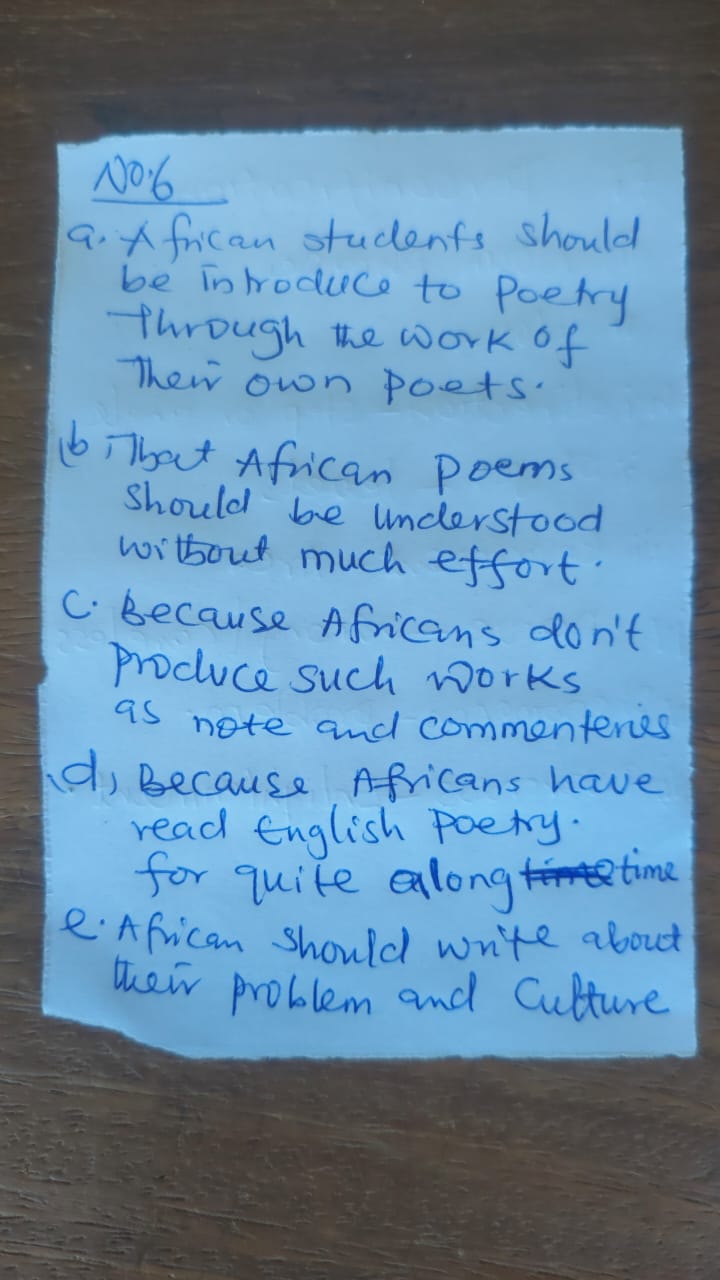 No:6
a. African students should
be introduce to poetry
through the work of
Their own poets.
b, That African poems
should be understood
without much effort.
C. Because Africans don't
produce such works
as note and commenteries
d, Because Africans have
read English poetry.
for quite along time time
e. African should write about
their problem and Culture